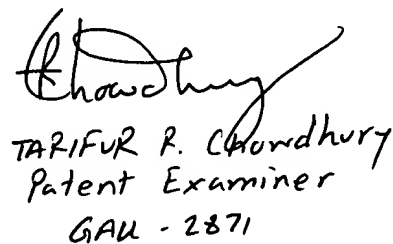 Chowdhury
TARIFUR R. Chowdhury
Patent Examiner
GAU - 2871